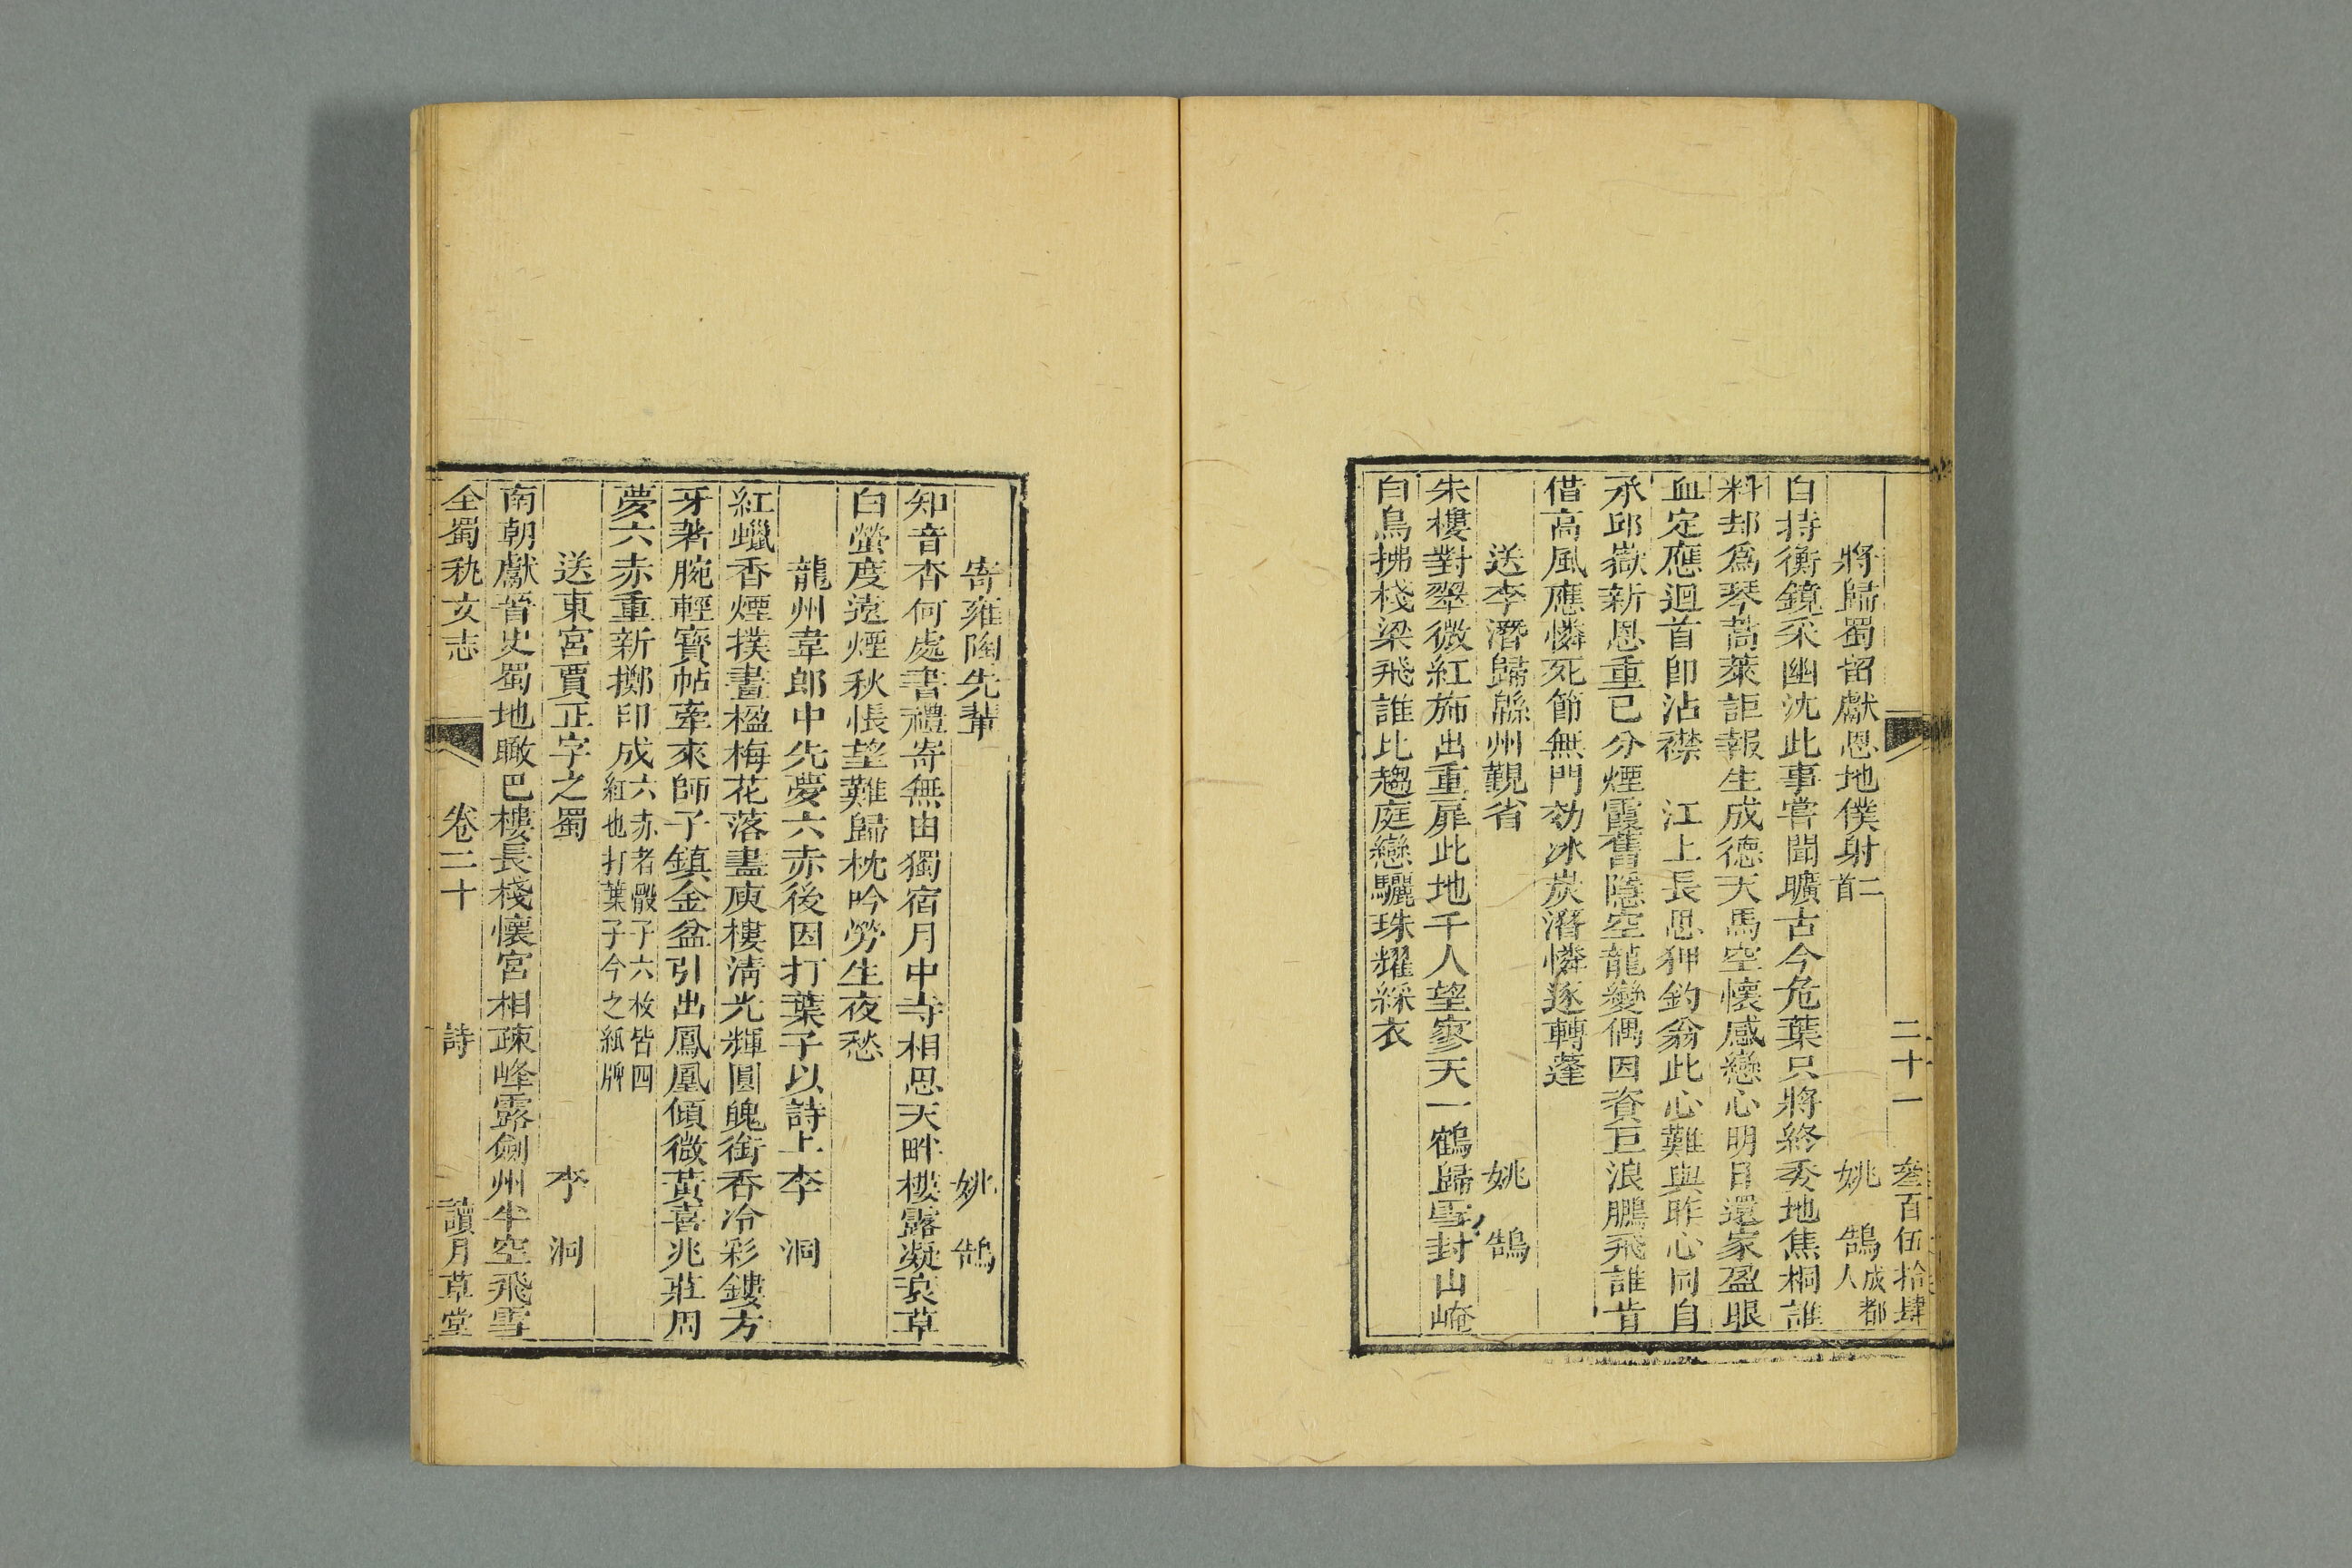 二十一 叄百伍拾肆
將歸蜀留獻恩地僕射二首 姚鵠成都人
自持衡鏡采幽沈此事嘗聞曠古今危葉只將終委地焦桐誰
料却爲琴蒿萊詎報生成德犬馬空懷感戀心明日還家盈眼
血定應迴首卽沾襟 江上長思狎釣翁此心難與昨心同自
承邱嶽新恩重已分煙霞舊隱空龍變偶因資巨浪鵬飛誰肯
借高風應憐死節無門効冰炭潛憐逐轉蓬
送李潛歸緜州覲省 姚鵠
朱樓對翠微紅旆出重扉此地千人望寥天一鶴歸雪封山崦
白鳥拂棧梁飛誰比趨庭戀驪珠耀綵衣
寄雍陶先輩 姚鵠
知音杳何處書禮寄無由獨宿月中寺相思天畔樓露凝衰草
白螢度遠煙秋悵望難歸枕吟勞生夜愁
龍州韋郎中先夢六赤後因打葉子以詩上李洞
紅蠟香煙撲畫楹梅花落盡庾樓淸光輝圓魄銜香冷彩鏤方
牙著腕輕寳帖牽來師子鎮金盆引出鳳凰傾微黃喜兆莊周
夢六赤重新擲印成六赤者骰子六枚皆四紅也打葉子今之紙牌
送東宮賈正字之蜀 李洞
南朝獻晉史蜀地瞰巴樓長棧懷宮相疎峰露劍州半空飛雪
全蜀秇文志 卷二十 詩 讀月草堂